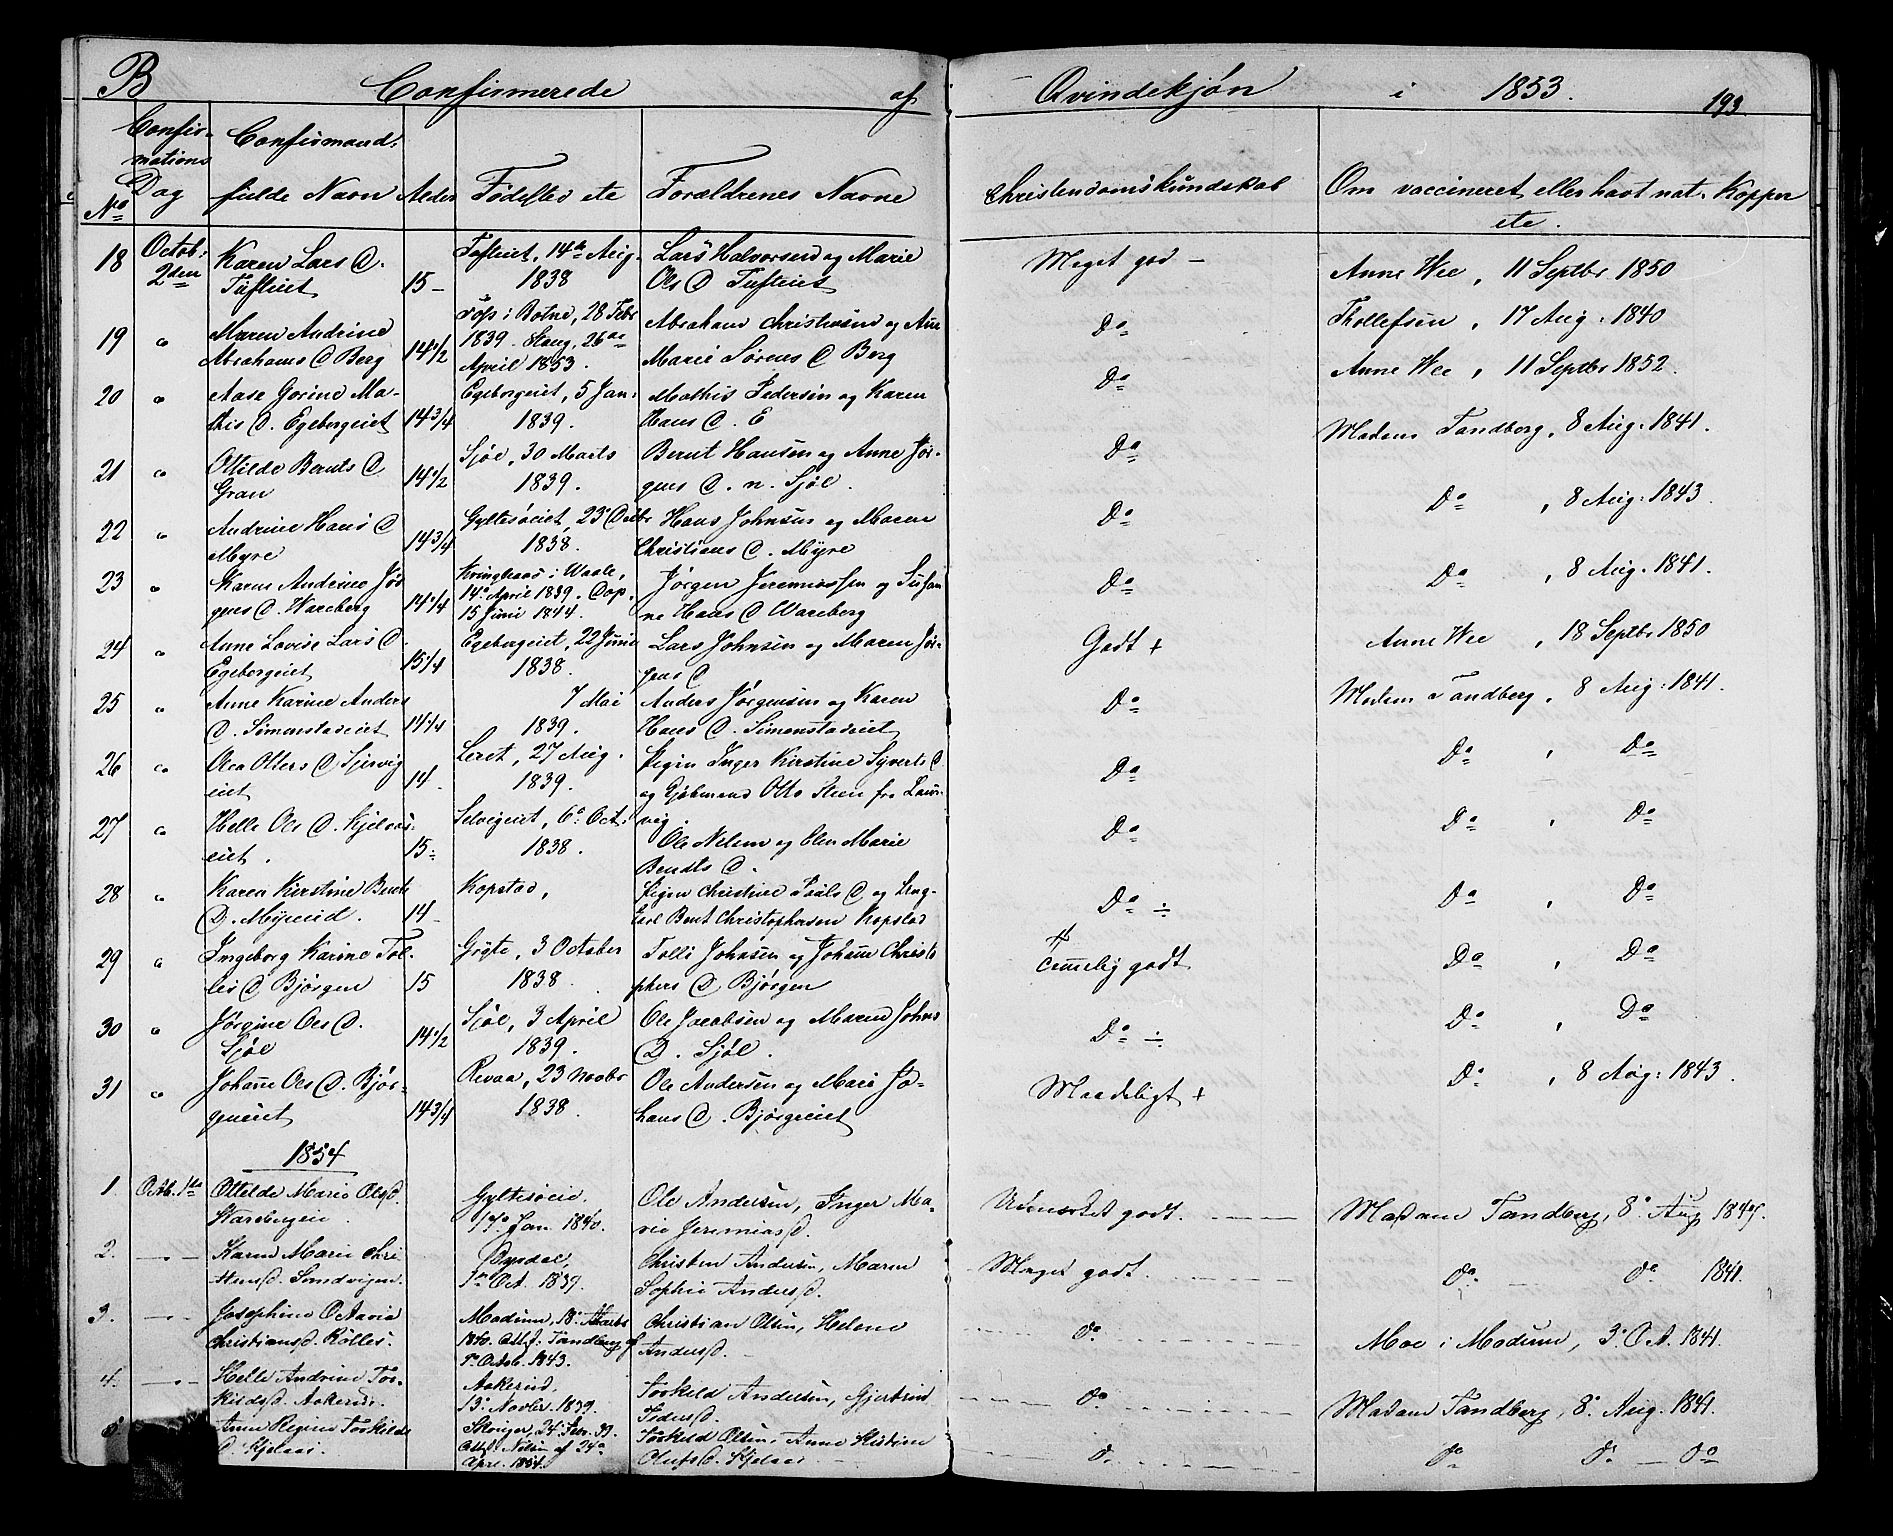 B Confirmerede af Qvindekjøn i 1853. 193
Confirmations Dag
No
Confirmand: fulde Navn
Alder
Fødested etc
Forældrenes Navne
Christendomskundskab
Om vaccineret eller havt nat. Kopper etc.
18 Octob: 2den Karen Lars D. 15 14de Aug. 1838 Lars Halvorsen og Marie Ols D Meget god – Anne Wee, 11 Septbr 1850
19 " Maren Andrine Abrahams D Berg 14 1/2 i Botne, 28 Febr 1839. Skoug, 26de April 1853. Abraham Christensen og Ann Marie Sørens D Berg Do Thollefsen, 17 Aug. 1840
20 " Aase Gorine Mathis D. Egeborgeiet 14 3/4 Egeborgeiet, 5 Jan: 1839. Mathis Pedersen og Karen Hans D. E Do Anne Wee, 11 Septbr 1852.
21 " Ottilde Bernts D Gran 14 1/2 Sjøl, 30 Marts 1839. Bernt Hansen og Anne Jørgens D. n. Sjøl. Do Madam Tandberg, 8 Aug. 1841.
22 " Andrine Hans D Myre 14 3/4 Gyltesøeiet, 23 Decbr 1838. Hans Johnsen og Maren Christiens D. Myre Do Do, 8 Aug: 1843.
23 " Karen Andrine Jørgens D. Wareberg 14 1/4 i Waale, 14de April 1839. Dop. 15 Juni 1844. Jørgen Jeremiassen og Susanne Hans D Wareberg Do Do, 8 Aug. 1841.
24 " Anne Lovise Lars D. Egeborgeiet 15 1/4 Egeborgeiet, 22 Juni 1838. Lars Johnsen og Maren Jørgens D Godt + Anne Wee, 18 Septbr 1850
25 " Anne Karine Anders D. Simonstadeiet 14 1/4 7 Mai 1839. Anders Jørgensen og Karen Hans D. Simonstadeiet Do Madam Tandberg, 8 Aug: 1841.
26 " Olea Otters D 14. Leret, 27 Aug. 1839. Pigen Inger Kirstine Syverts D. og Otto Steen fra Laurvig. Do Do, Do
27 " Helle Ols D. Kjelaaseiet. 15 Selvigeiet, 6te Oct: 1838. Ole Nilsen og Elen Marie Bendts D. Do Do, Do
28 " Karen Kirstine Bents D. Myreeid. 14 Kopstad, Pigen Christine Pauls D og Ungkarl Bent Christophersen Kopstad Do ÷ Do, Do
29 " Ingeborg Karine Tolles D Bjørgen 15 3 October 1838. Tolle Johnsen og Johanne Christophers D Bjørgen Temmelig godt Do, Do
30 " Jørgine Ols D. Sjøl 14 1/2 Sjøl, 3 April 1839. Ole Jacobsen og Maren Johns D. Sjøl. Do ÷ Do, Do
31 " Johanne Ols D. Bjørgeneiet 14 3/4 Revaa, 23 Novbr 1838. Ole Andersen og Mari Johans D. Bjørgeiet Maadeligt + Do, 8 Aug: 1843.
1854
1. Octb. 1ste Ottilde Marie Olsd. Gyltesøeie. Jan. 1840. Ole Andersen, Inger Marie Jeremiasd. Udmærket godt. Madame Tandberg, 8. Aug
2. Karen Marie Christensd. Sandvigen. Oct. 1839. Christen Andersen, Maren Sophie Andersd. Meget godt. Do Do 1841.
3. Josephine Octavia Christiansd. Modum, 18. Marts 1840. Att.f. Tandberg af Octob. 1843. Christian Olsen, Helene Andersd. Do Moe i Modum, 3. Oct. 1841.
4. Helle Andrine Torkildsd. Aakerud. Aakerud, 13. Novbr. 1839. Torkild Andersen, Gjertrud Pedersd. Do Madam Tandberg, 8. Aug. 1841.
5 Anne Regine Torkilds D. Kjelaas. 24. Febr. 39. Att.f. Nilsen af 24de Apr. 1854. Torkild Olsen, Anne Kirstine Olufsd. Kjelaas. Do Do Do Do